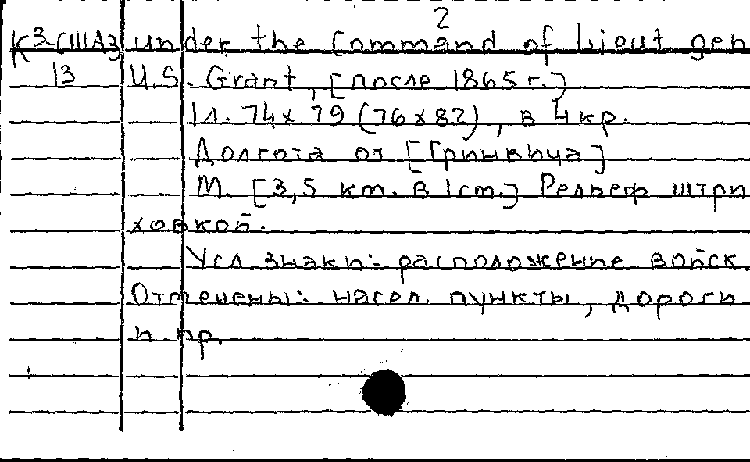 2
К3-(США) under the Command of Lieut gen
13 U.S. Grant, [после 1865 г.]
1 л. 74 x 79 (76 x 82), в 4 кр.
Долгота от [Гринвича]
М. [3,5 км. в 1 см.] Рельеф штри
ховкой.
Усл. знаки: расположение войск.
Отмечены: насел. пункты, дороги
и пр.